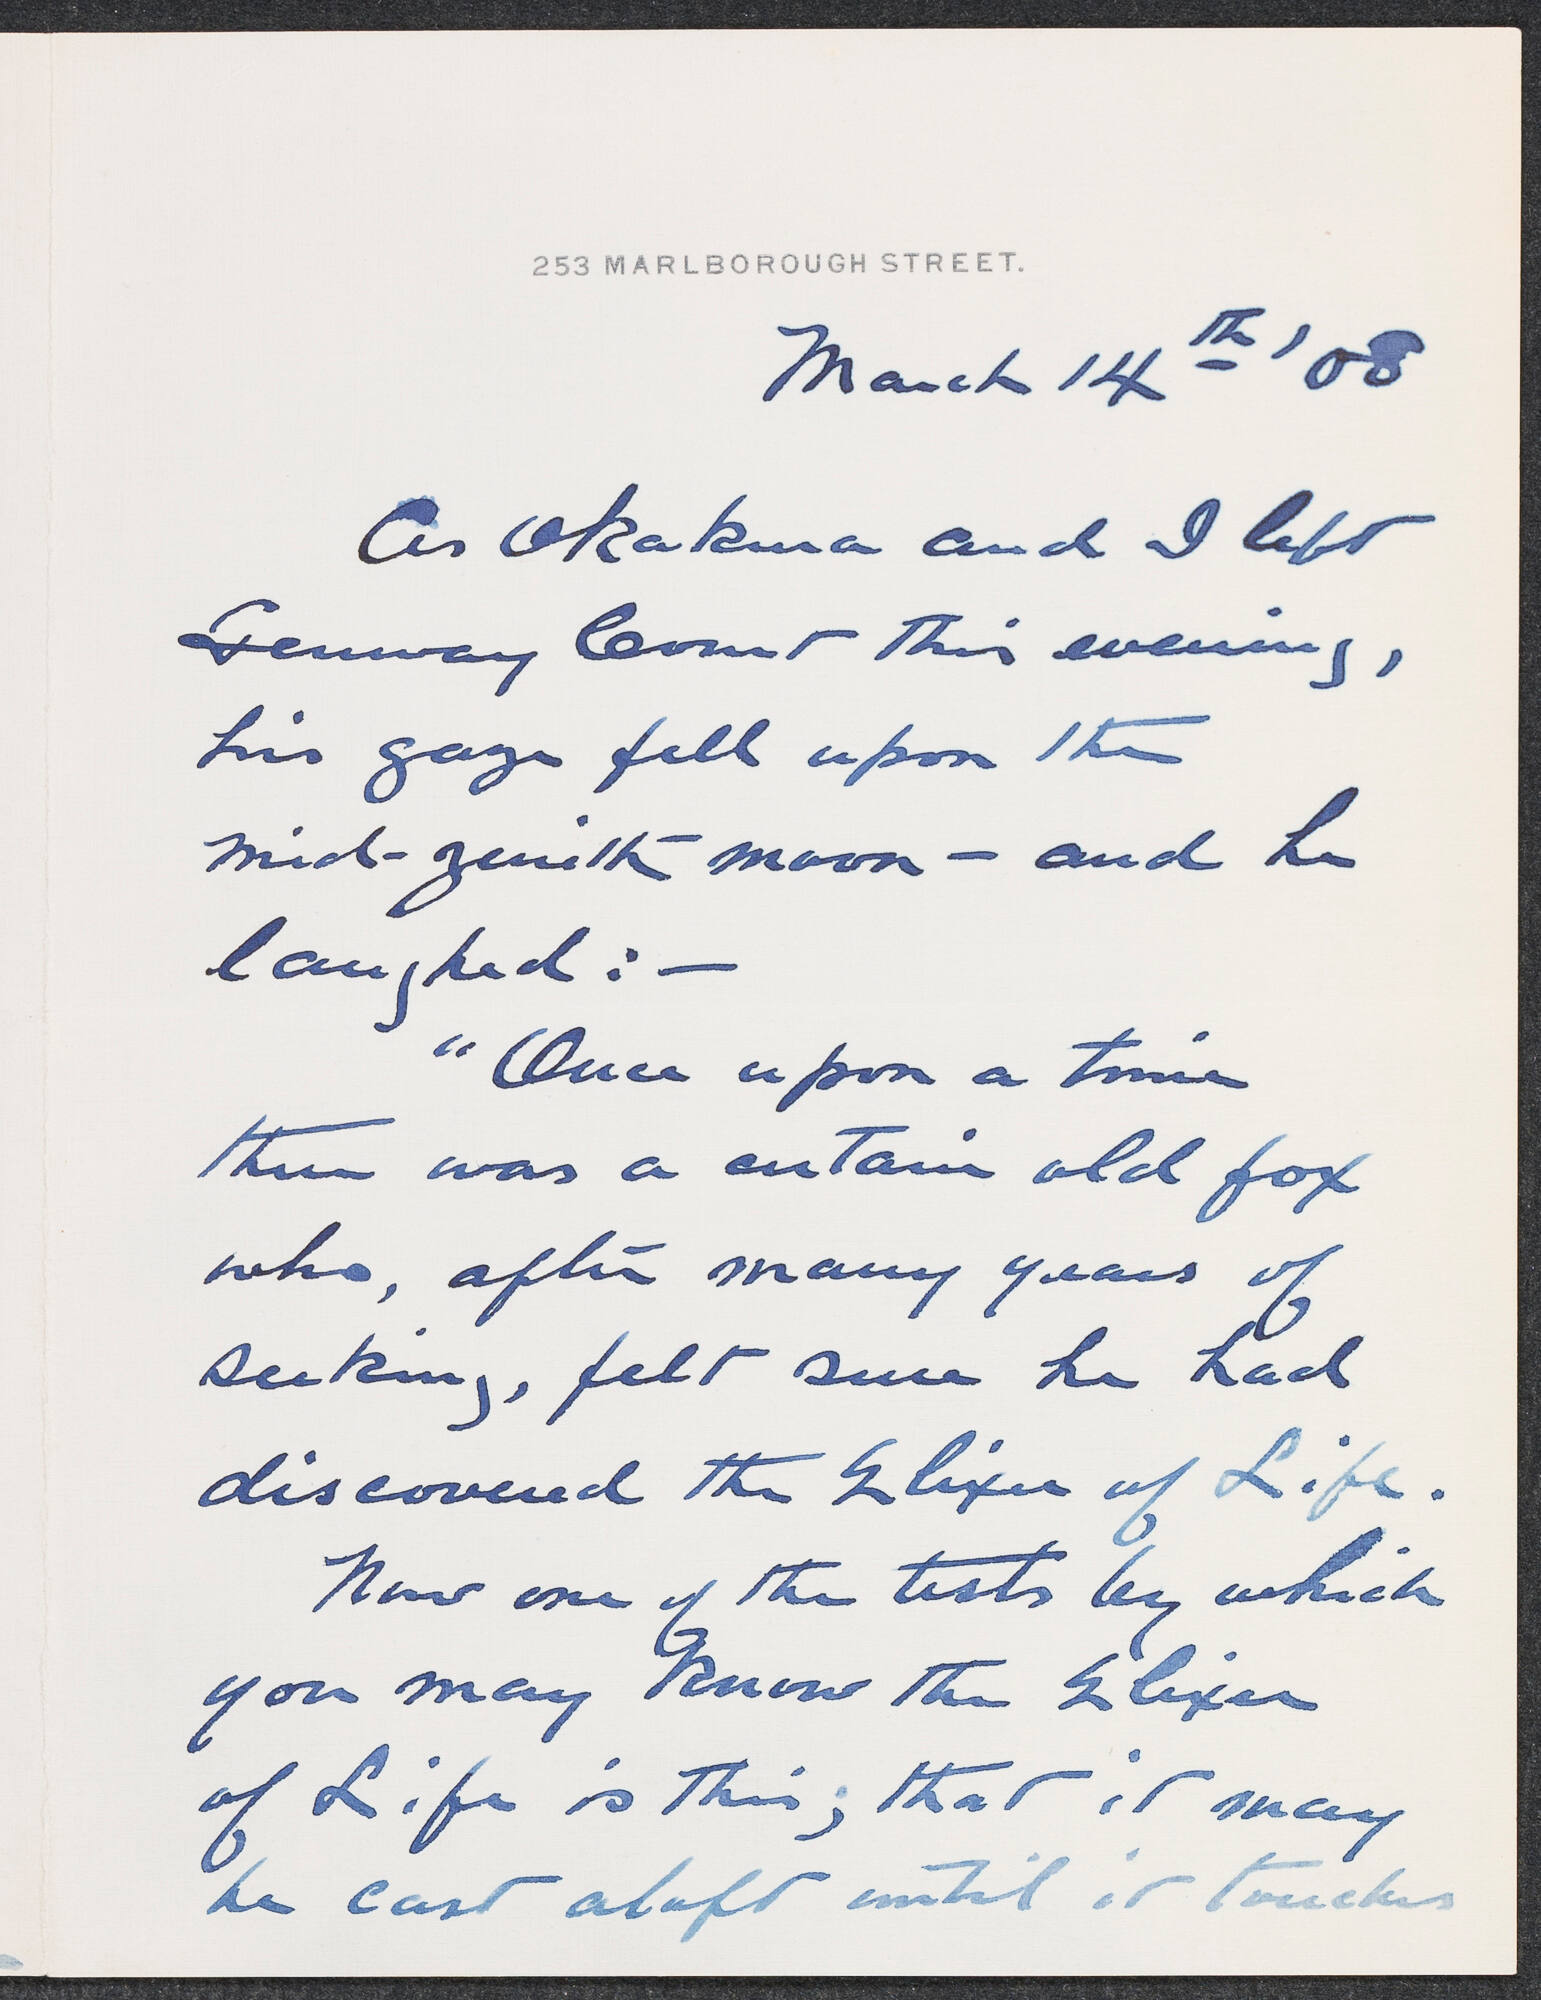 253 MARLBOROUGH STREET.
March 14th '08
As Okakura and I left
Fenway Court this evening,
his gaze fell upon the
mid-zenith moon – and he
laughed : –
"Once upon a time
there was a certain old fox
who, after many years of
seeking, felt sure he had
discovered the Elixer of Life.
Now one of the tests by which
you may know the Elixer
of Life is this; that it may
be cast aloft until it touches